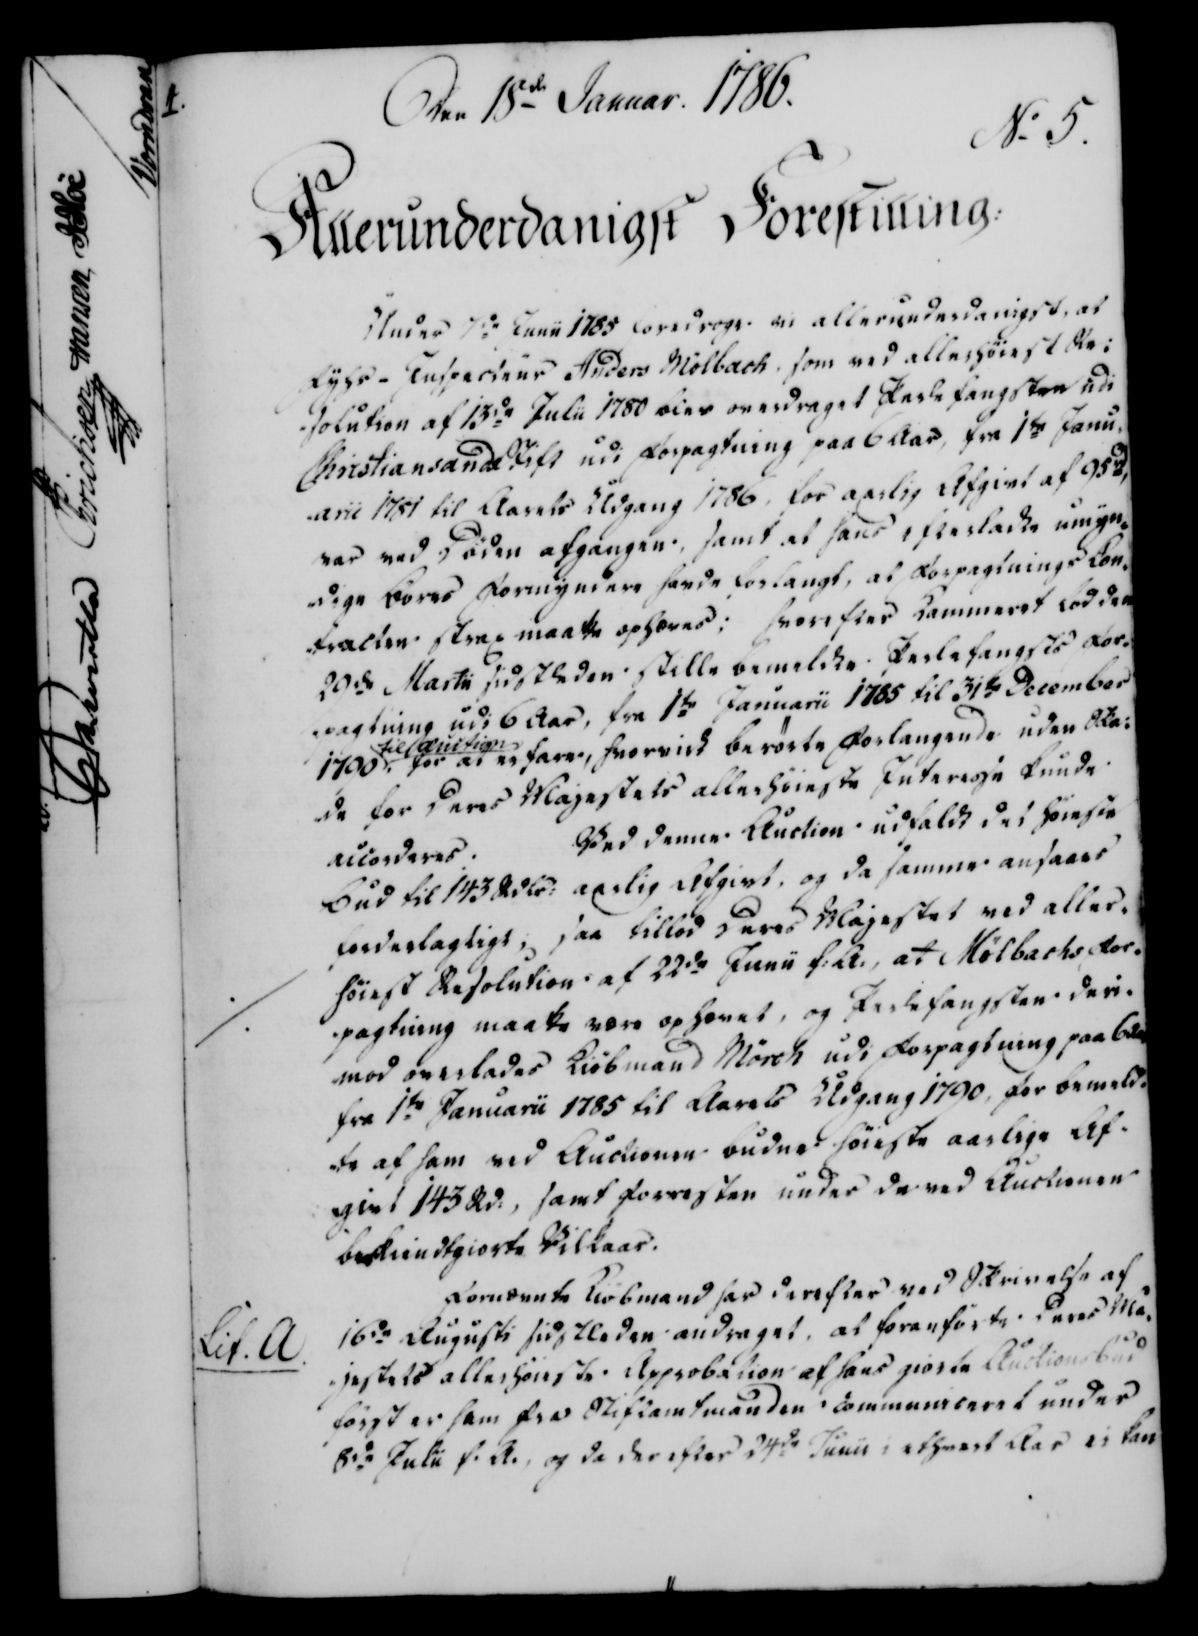 Den 18de Januar. 1786.
No 5.
Allerunderdanigst Forestilling.
Under 7de Junii 1785 foredroge vi allerunderdanigst, at
Fyhr-Inspecteur Anders Mölbach, som ved allerhöiest Re-
solution af 13de Julii 1780 blev overdraget Perlefangsten udi
Christiansands Stift udi Forpagtning paa 6 Aar, fra 1te Janu-
arii 1781 til Aarets Udgang 1786, for aarlig Afgivt af 95 rd,
var ved Döden afgangen, samt at hans efterladte umyn-
dige Börns Formyndere havde forlangt, at Forpagtnings Con-
tracten strax maatte ophæves; hvorefter Kammeret lod den
29de Martii sidstleden stille bemeldte Perlefangsts For-
pagtning udi 6 Aar, fra 1te Januarii 1785 til 31te December
1790, til Auction for at erfare, hvorvidt berörte Forlangende uden Ska-
de for Deres Majestets allerhöieste Interesse kunde
accorderes. Ved denne Auction udfaldt det höieste
Bud til 143 Rdlr: aarlig Afgivt, og da samme ansaaes
fordelagtigt; saa tillod Deres Majestet ved aller-
höiest Resolution af 22de Junii f. A., at Mölbachs For-
pagtning maatte være ophævet, og Perlefangsten deri-
mod overlades Kiöbmand Mörch udi Forpagtning paa 6 Aar
fra 1te Januarii 1785 til Aarets Udgang 1790, for bemeld-
te af ham ved Auctionen budne höieste aarlige Af-
givt 143 Rd., samt forresten under de ved Auctionen
bekiendtgiorte Vilkaar.
Fornævnte Kiöbmand har derefter ved Skrivelse af
Lit. A. 16de Augusti sidstleden andraget, at foranförte Deres Ma-
jestets allerhöieste Approbation af hans giorte Auctionsbud
först er ham fra Stiftamtmanden communiceret under
8de Julii f. A., og da der efter 24de Junii i ethvert Aar ei kan